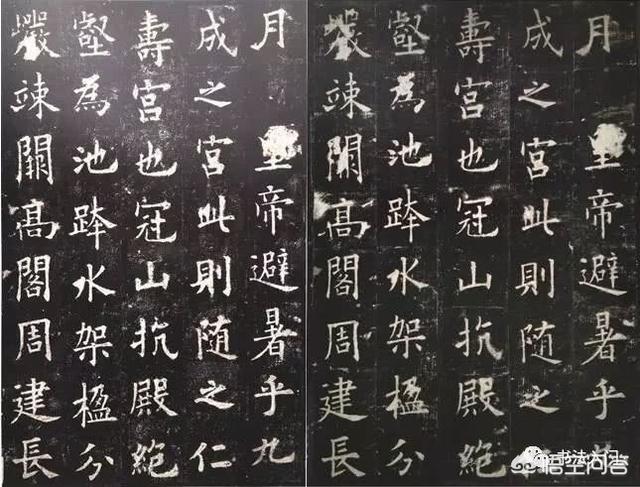 月 皇帝避暑乎九
成之宮此則随之仁
壽宮也冠山抗殿絕
壑為池跨水架楹分
巖竦闕高閣周建長
月 皇帝避暑乎
成之宮此則随之
壽宮也冠山抗殿絕
壑為池跨水架楹分
巖竦闕高閣周建長
书法
悟空问答